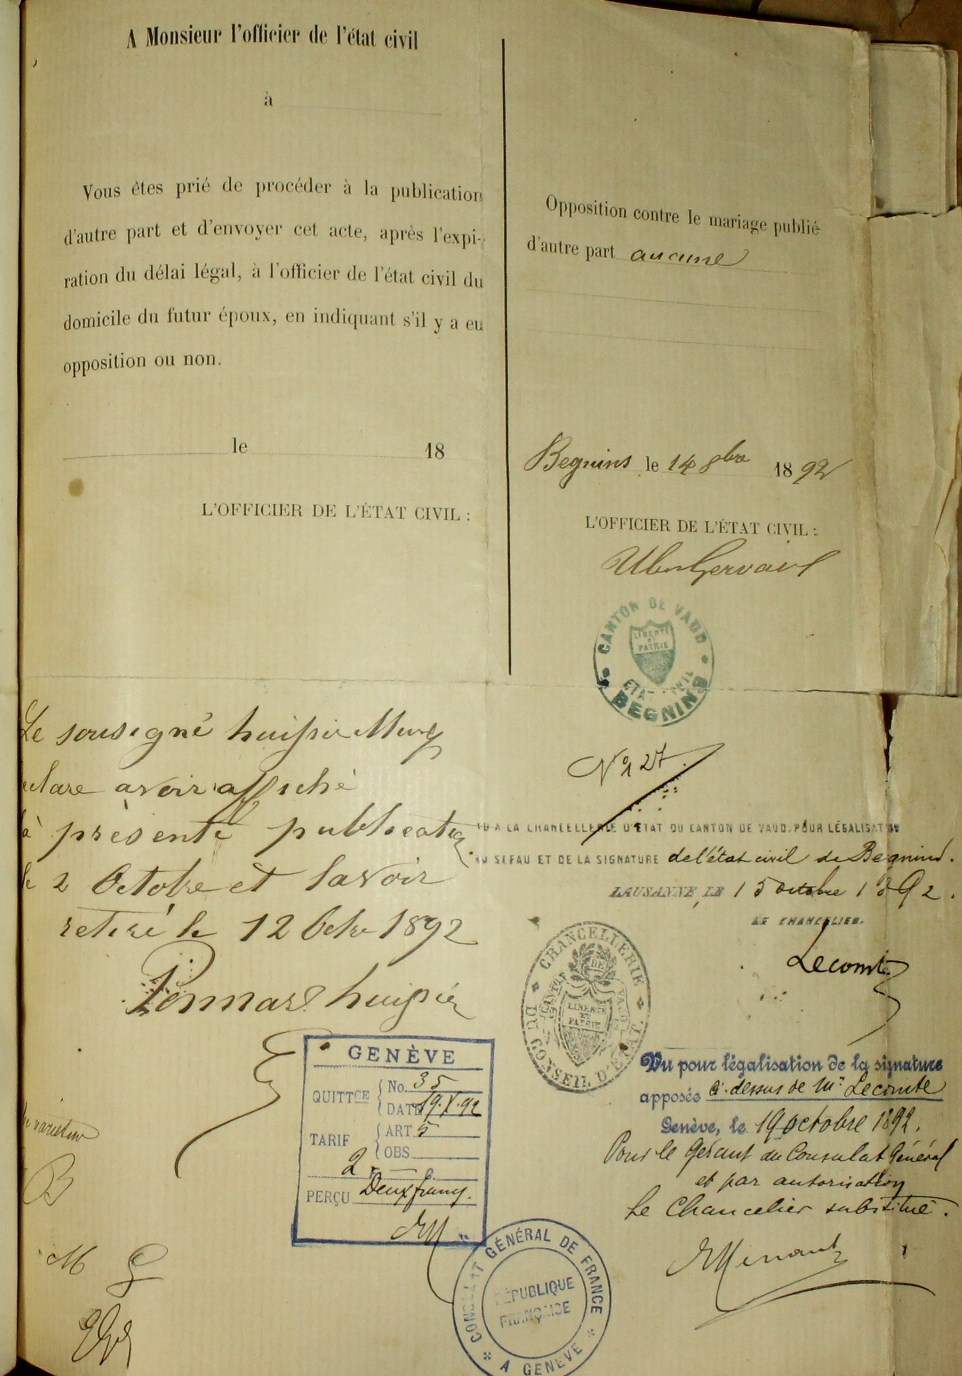 A Monsieur l'officier de l'état civil
à
Vous êtes prié de procéder à la publication
d'autre part et d'envoyer cet acte, après l'expi-
ration du délai légal, à l'officier de l'état civil du
domicile du futur époux, en indiquant s'il y a eu
opposition ou non.
le 18
L'OFFICIER DE L'ÉTAT CIVIL :
Opposition contre le mariage publié
d'autre part aucune
Begnins le 14 8bre 1892
L'OFFICIER DE L'ÉTAT CIVIL :
CANTON DE VAUD
LIBERTÉ
ET
PATRIE
ÉTAT CIVIL
BEGNINS
Le sousigné huissier
clare avoir affiché
présente publication
le 2 Octobre et l'avoir
retiré le 12 Octre 1892
huissier
No 27
VU A LA CHANCELLERIE D'ÉTAT DU CANTON DE VAUD, POUR LÉGALISATION
DU SCEAU ET DE LA SIGNATURE de l'état civil de Begnins.
LAUSANNE, LE 15 octobre 1892.
LE CHANCELIER.
Lecomte
CHANCELLERIE
DU CONSEIL D'ÉTAT
CANTON DE VAUD
LIBERTÉ
ET
PATRIE
GENÈVE
QUITTCE No. 35
DATE 19.X.92
TARIF ART 5
OBS
2
PERÇU Deux francs.
Vu pour légalisation de la signature
apposée ci-dessus de Mr Lecomte
Genève, le 19 octobre 1892.
Pour le Gérant du Consulat Général
et par autorisation
Le Chancelier substitué.
CONSULAT GÉNÉRAL DE FRANCE
RÉPUBLIQUE
FRANÇAISE
A GENÈVE
B
M